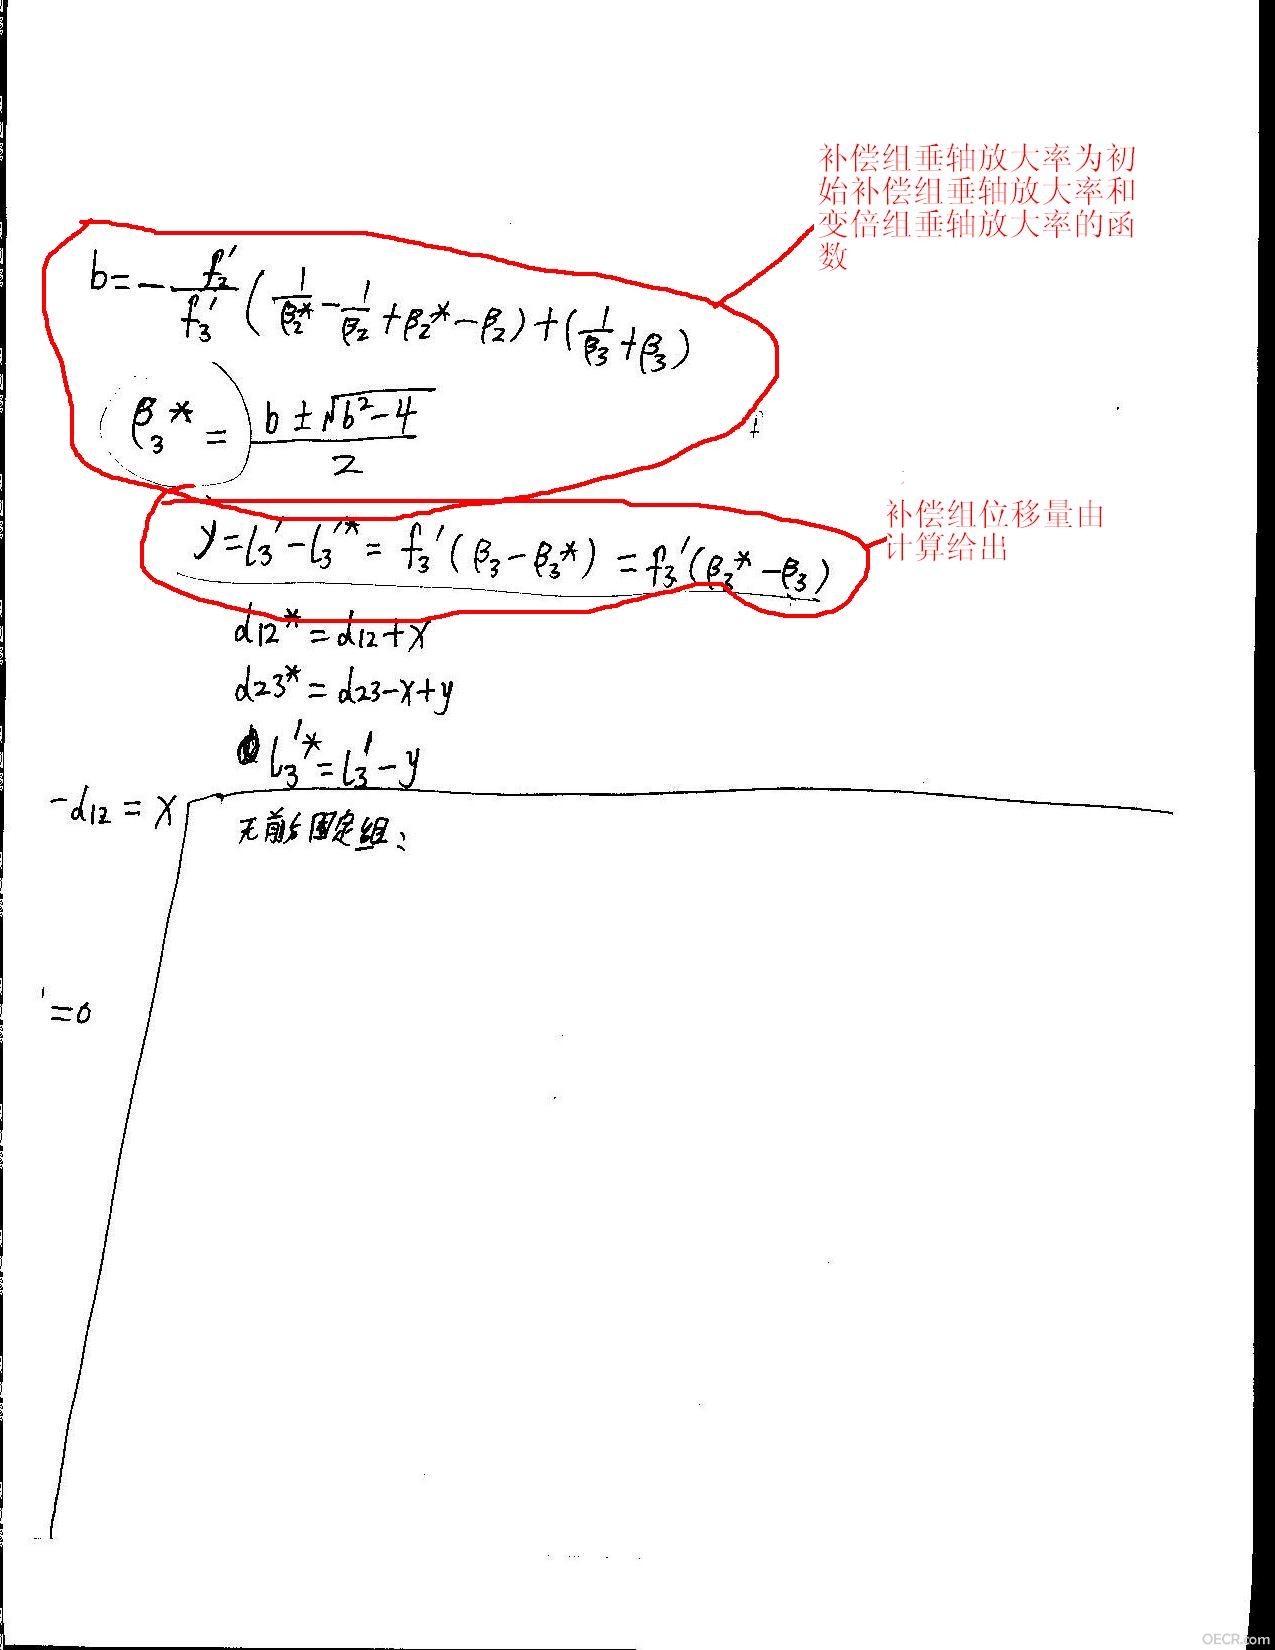 补偿组垂轴放大率为初
始补偿组垂轴放大率和
变倍组垂轴放大率的函
数
b=-f₂'/f₃'(1/β₂*-1/β₂+β₂*-β₂)+(1/β₃+β₃)
β₃*=(b±√(b²-4))/2
补偿组位移量由
计算给出
y=l₃'-l₃'*=f₃'(β₃-β₃*)=f₃'(β₃*-β₃)
d12*=d12+x
d23*=d23-x+y
l₃'*=l₃'-y
-d12=x
无前固定组:
'=0
OECR.com